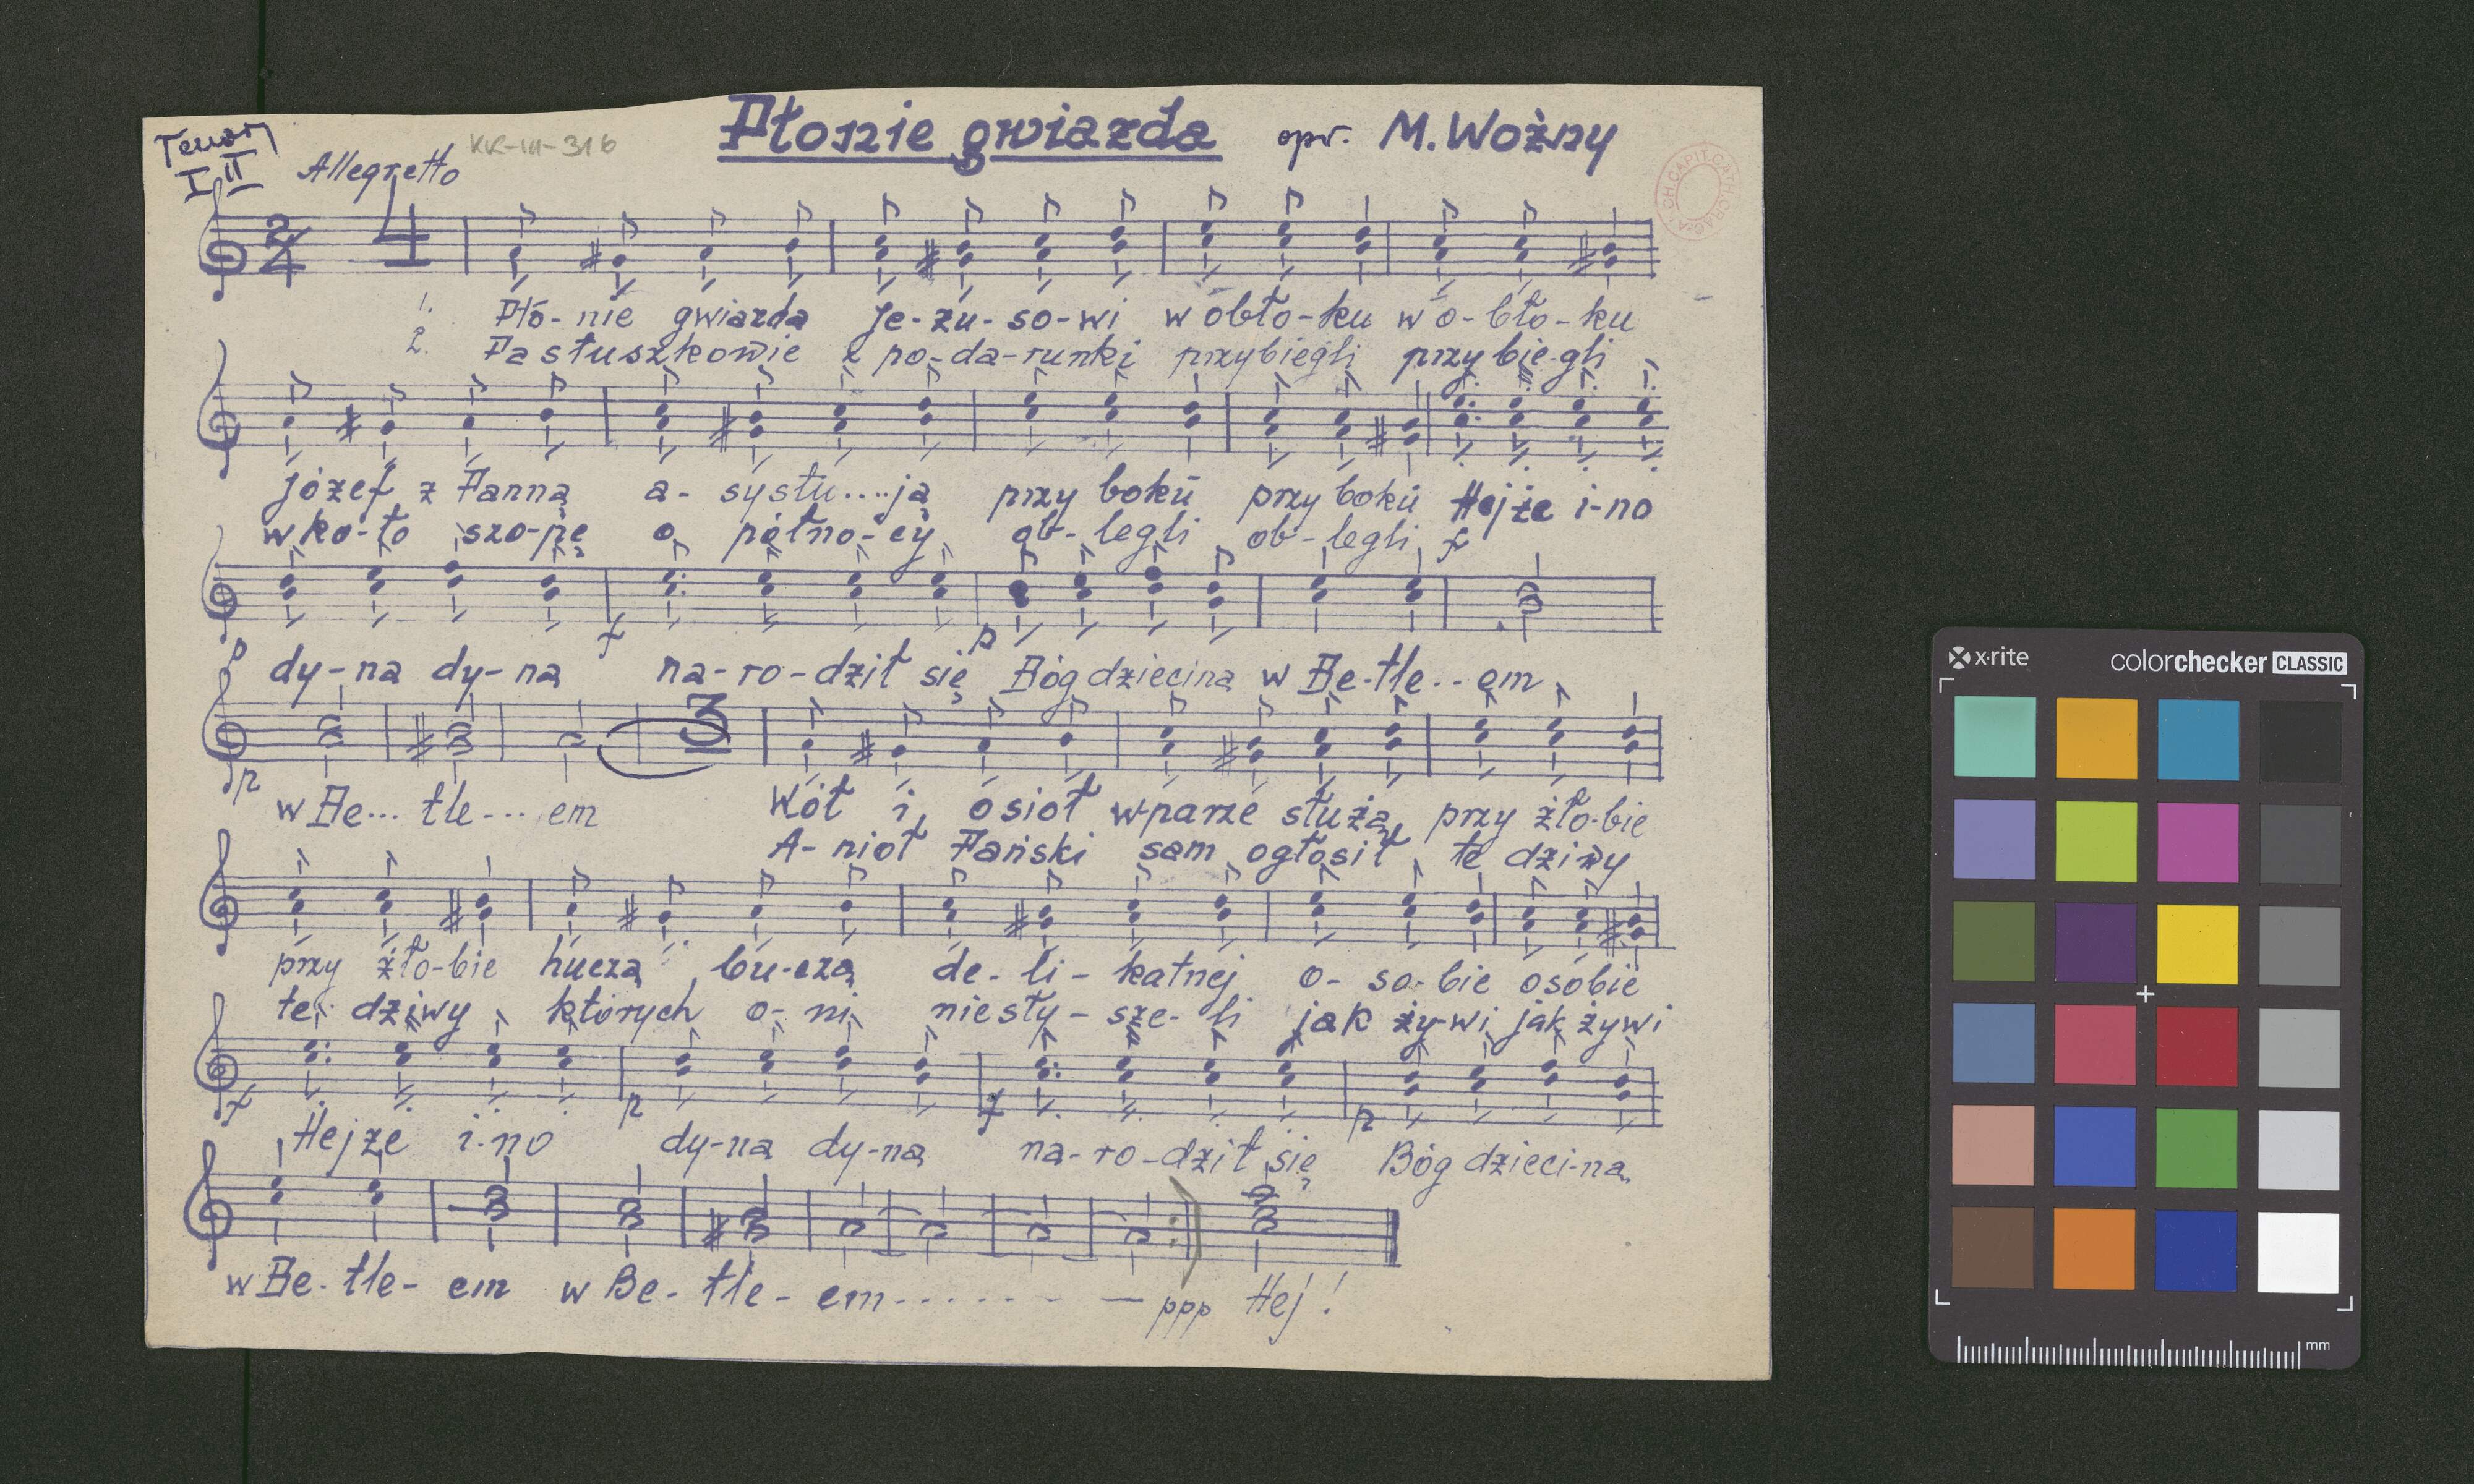 Tenor
I II
Allegretto
KK-III-316
Płonie gwiazda opr. M. Woźny
CH. CAPIT. CATH. CRAC.
2/4 4
1. Pło-nie gwiazda Je-zu-so-wi w obło-ku w o-bło-ku
2. Pastuszkowie z po-da-runki przybiegli przybie-gli
Józef z Panną a-systu....ją przy boku przy boku Hejże i-no
wko-ło szo-pę o półno-cy ob-legli ob-legli f
p dy-na dy-na f na-ro-dził się p Bóg dziecina w Be-tle..em
3
p w Be... tle... em Wół i osioł wparze służą przy żło-bie
A-nioł Pański sam ogłosił te dziwy
przy żło-bie huczą bu-czą de-li-katnej o-so-bie osobie
te dziwy których o-ni niesły-sze-li jak ży-wi jak żywi
f p f p
Hejże i-no dy-na dy-na na-ro-dził się Bóg dzieci-na
w Be-tle-em w Be-tle-em - - - - - - — ppp Hej!
x·rite colorchecker CLASSIC
mm